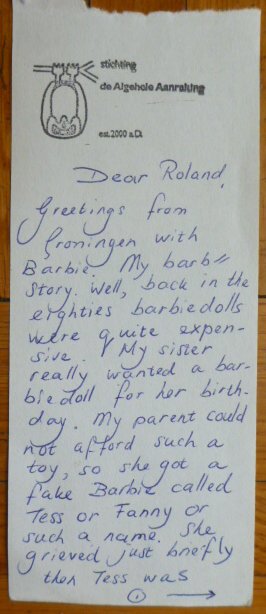 stichting
de Algehele Aanraking
est. 2000 a.D.
Dear Roland,
Greetings from
Groningen with
Barbie. My barb//
story. Well, back in the
eighties barbiedolls
were quite expen-
sive. My sister
really wanted a bar-
biedoll for her birth-
day. My parent could
not afford such a
toy, so she got a
fake Barbie called
Tess or Fanny or
such a name. She
grieved just briefly
then Tess was
1 →